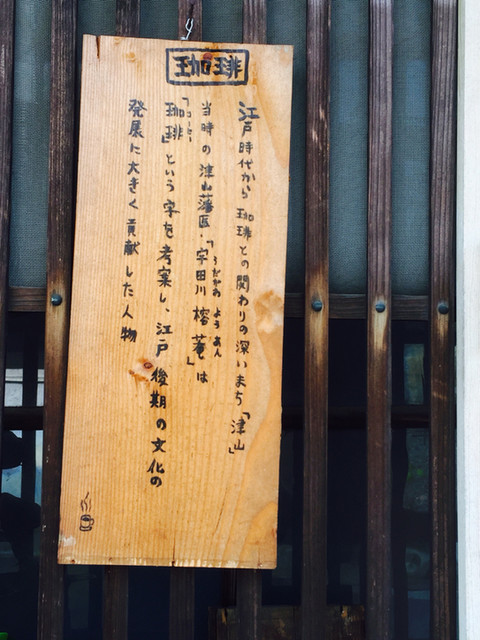 珈琲
江戸時代から珈琲との関わりの深いまち「津山」
当時の津山藩医・「宇田川榕菴」は
うだがわ ようあん
「珈琲」という字を考案し、江戸後期の文化の
発展に大きく貢献した人物